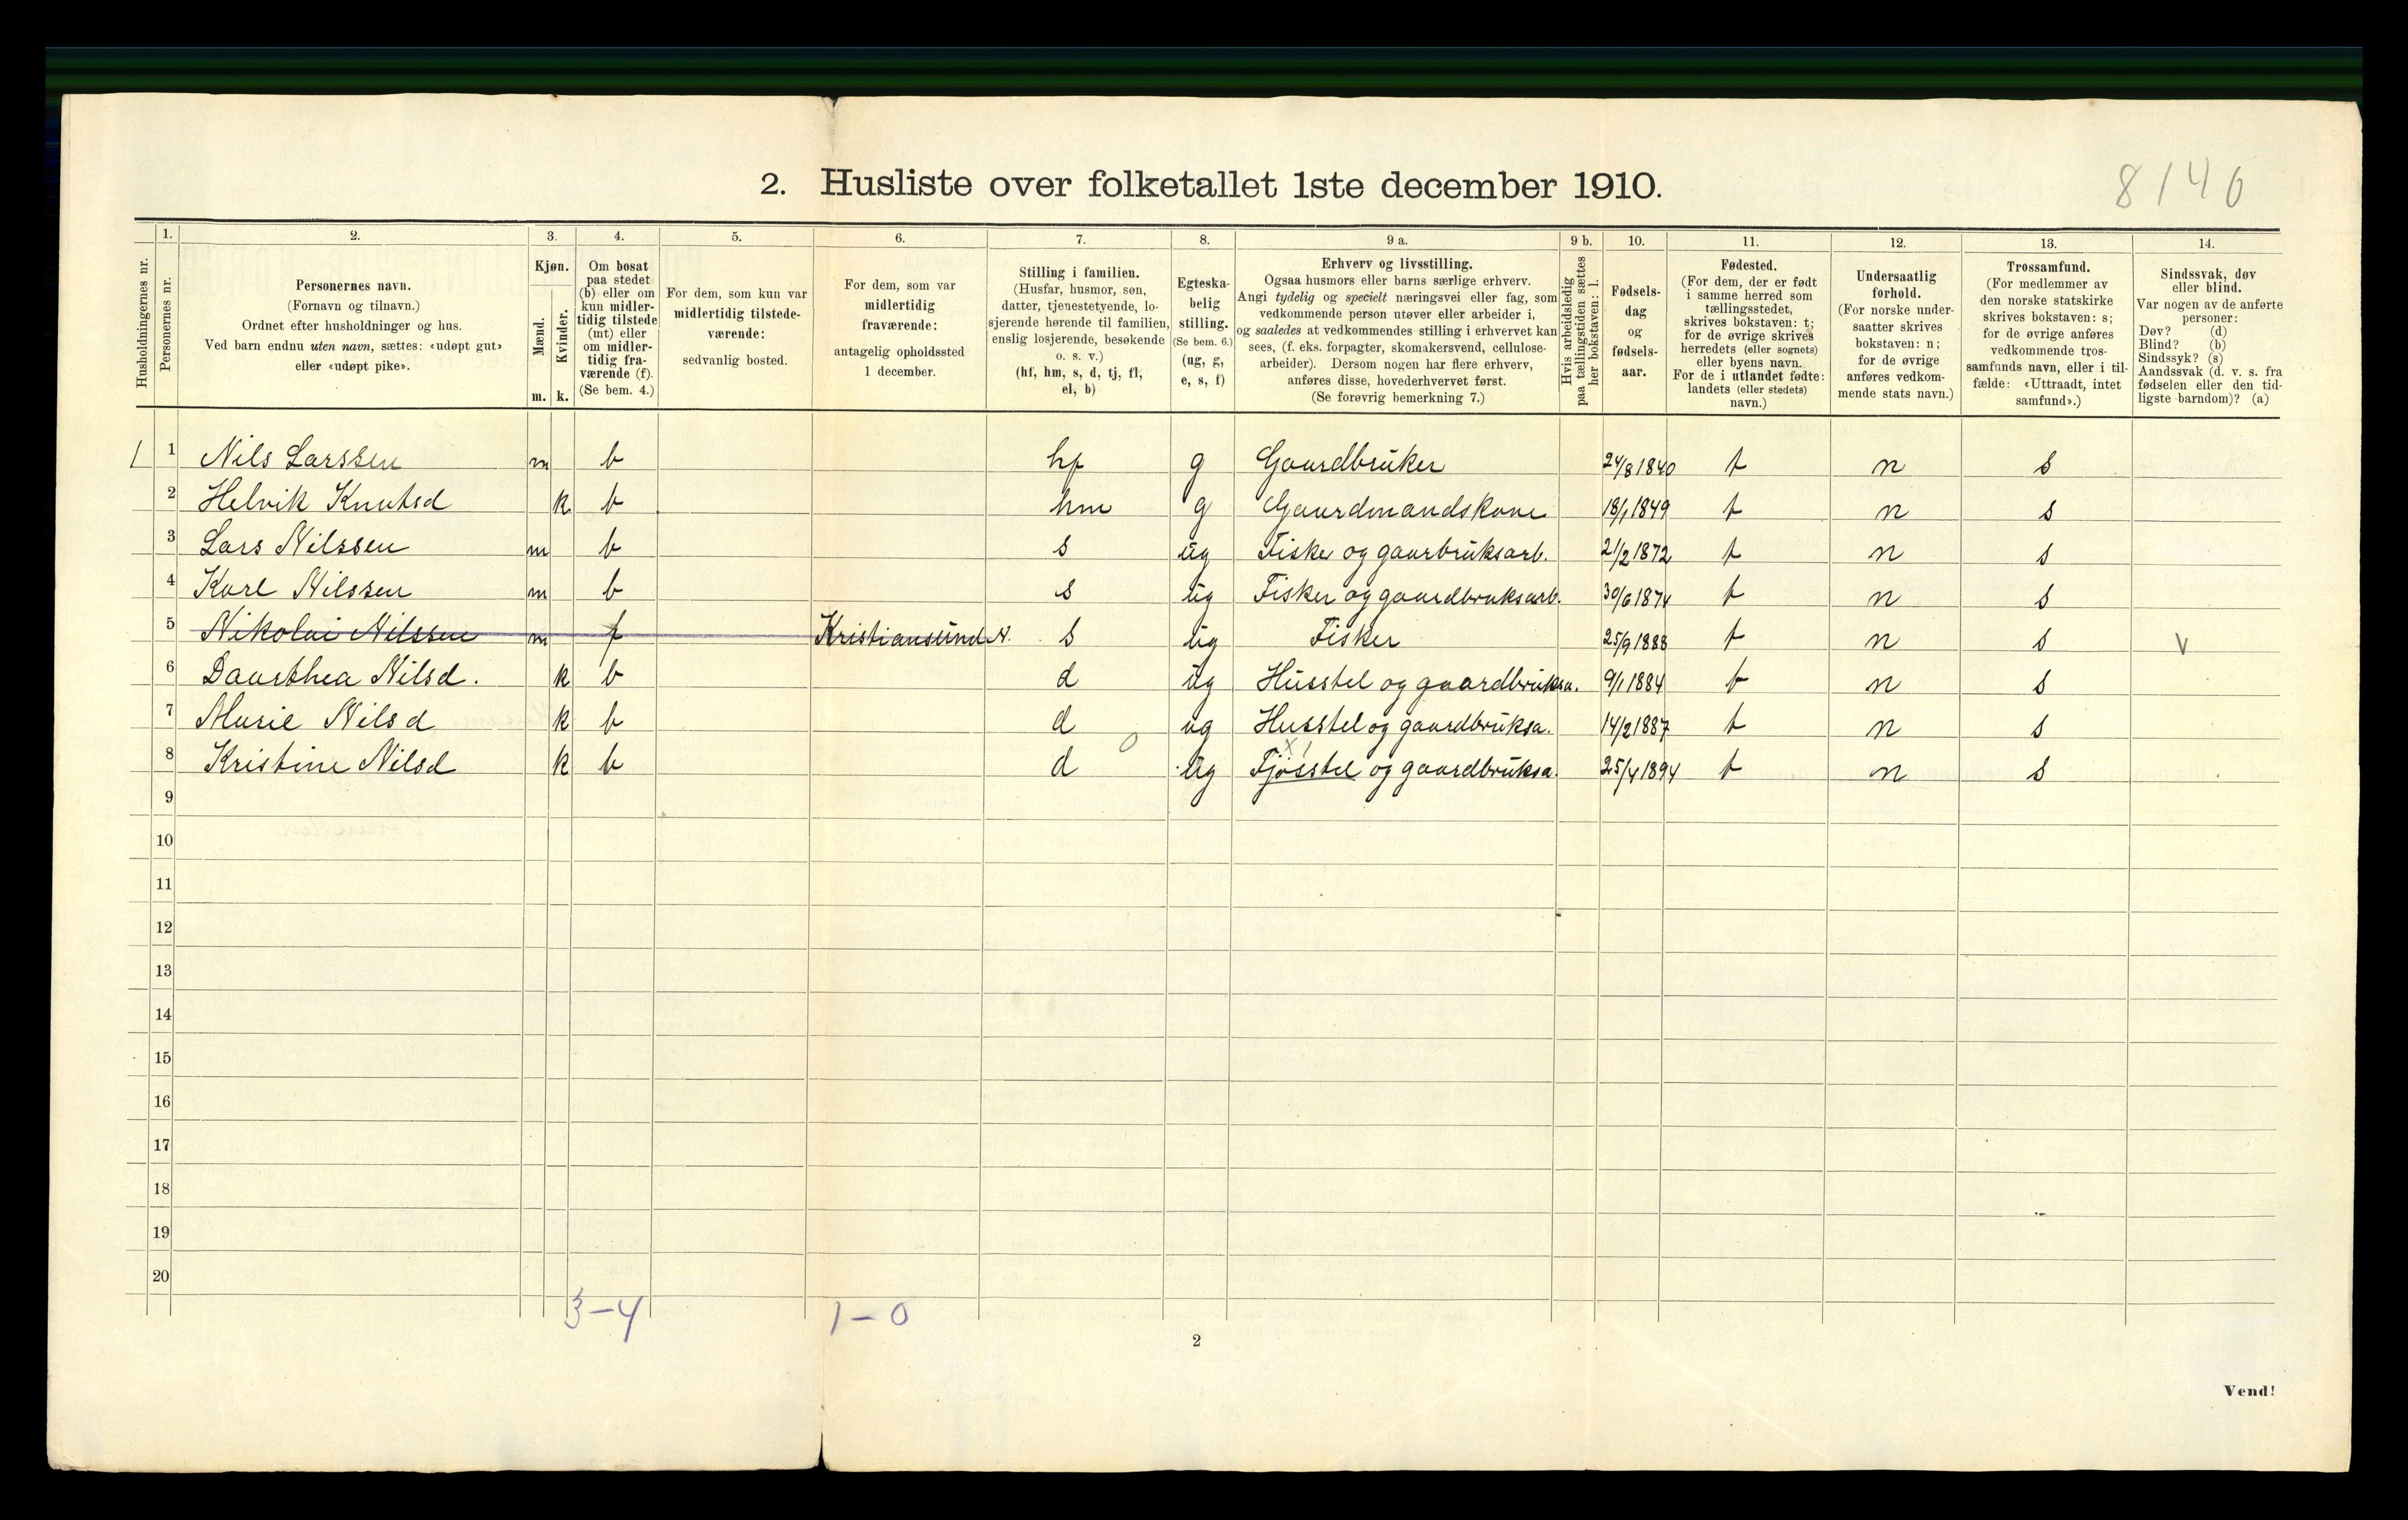 8140
2. Husliste over folketallet 1ste december 1910.
Husholdningernes nr.
1.
Personernes nr.
2.
Personernes navn.
(Fornavn og tilnavn.)
Ordnet efter husholdninger og hus.
Ved barn endnu uten navn, sættes: «udøpt gut»
eller «udøpt pike».
3.
Kjøn.
Mænd.
Kvinder.
m. k.
4.
Om bosat
paa stedet
(b) eller om
kun midler-
tidig tilstede
(mt) eller
om midler-
tidig fra-
værende (f).
(Se bem. 4.)
5.
For dem, som kun var
midlertidig tilstede-
værende:
sedvanlig bosted.
6.
For dem, som var
midlertidig
fraværende:
antagelig opholdssted
1 december.
7.
Stilling i familien.
(Husfar, husmor, søn,
datter, tjenestetyende, lo-
sjerende hørende til familien,
enslig losjerende, besøkende
o. s. v.)
(hf, hm, s, d, tj, fl,
el, b)
8.
Egteska-
belig
stilling.
(Se bem. 6.)
(ug, g,
e, s, f)
9 a.
Erhverv og livsstilling.
Ogsaa husmors eller barns særlige erhverv.
Angi tydelig og specielt næringsvei eller fag, som
vedkommende person utøver eller arbeider i,
og saaledes at vedkommendes stilling i erhvervet kan
sees, (f. eks. forpagter, skomakersvend, cellulose-
arbeider). Dersom nogen har flere erhverv,
anføres disse, hovederhvervet først.
(Se forøvrig bemerkning 7.)
9 b.
Hvis arbeidsledig
paa tællingstiden sættes
her bokstaven: l.
10.
Fødsels-
dag
og
fødsels-
aar.
11.
Fødested.
(For dem, der er født
i samme herred som
tællingsstedet,
skrives bokstaven: t;
for de øvrige skrives
herredets (eller sognets)
eller byens navn.
For de i utlandet fødte:
landets (eller stedets)
navn.)
12.
Undersaatlig
forhold.
(For norske under-
saatter skrives
bokstaven: n;
for de øvrige
anføres vedkom-
mende stats navn.)
13.
Trossamfund.
(For medlemmer av
den norske statskirke
skrives bokstaven: s;
for de øvrige anføres
vedkommende tros-
samfunds navn, eller i til-
fælde: «Uttraadt, intet
samfund».)
14.
Sindssvak, døv
eller blind.
Var nogen av de anførte
personer:
Døv? (d)
Blind? (b)
Sindssyk? (s)
Aandssvak (d. v. s. fra
fødselen eller den tid-
ligste barndom)? (a)
1 1 Nils Larssen m b hf g Gaardbruker 24/8 1840 t n s
2 Helvik Knutsd k b hm g Gaardmandskone 18/1 1849 t n s
3 Lars Nilssen m b s ug Fisker og gaarbruksarb. 21/2 1872 t n s
4 Karl Nilssen m b s ug Fisker og gaardbruksarb. 30/6 1874 t n s
5 Nikolai Nilssen m f Kristiansund N. s ug Fisker 25/9 1888 t n s v
6 Daarthea Nilsd. k b d ug Husstel og gaardbruksa. 9/1 1884 t n s
7 Marie Nilsd k b d ug Husstel og gaardbruksa. 14/2 1887 t n s
8 Kristine Nilsd k b d 0 ug Fjøsstel og gaardbruksa. 25/4 1894 t n s
9
10
11
12
13
14
15
16
17
18
19
20
3-4 1-0
2
Vend!